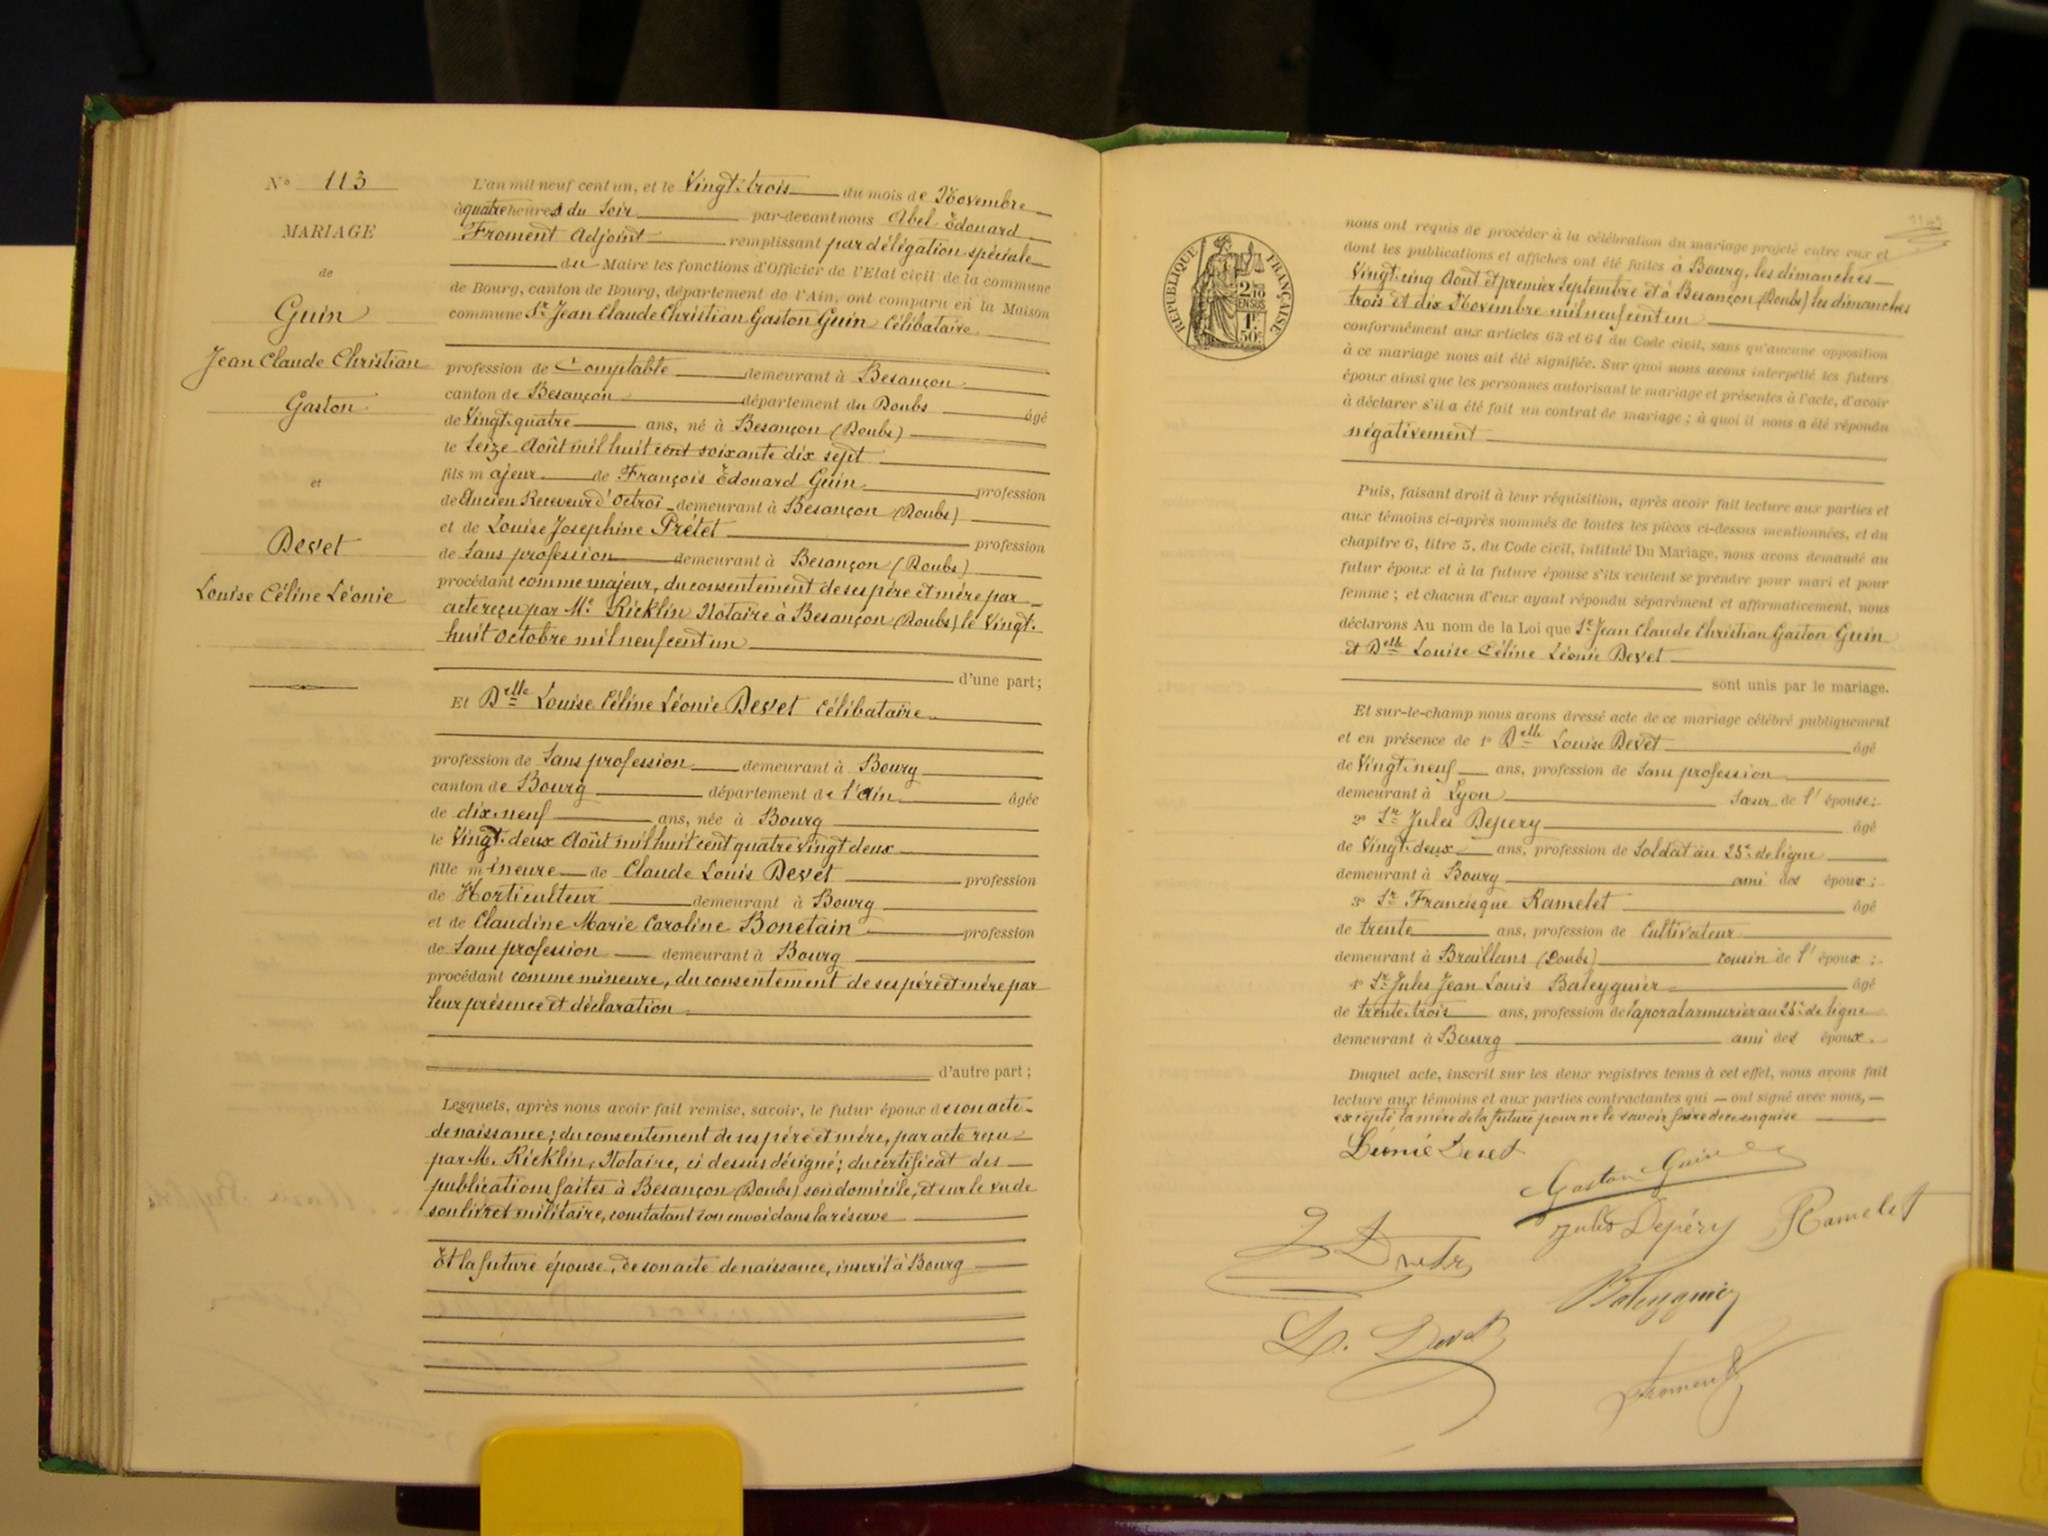 N° 113
MARIAGE
de
Guin
Jean Claude Christian
Gaston
et
Devet
Louise Céline Léonie
L'an mil neuf cent un, et le Vingt-trois du mois de Novembre
à quatre heures du Soir par-devant nous Abel Édouard
Froment Adjoint remplissant par délégation spéciale
du Maire les fonctions d'Officier de l'Etat civil de la commune
de Bourg, canton de Bourg, département de l'Ain, ont comparu en la Maison
commune Sr Jean Claude Christian Gaston Guin Célibataire
profession de Comptable demeurant à Besançon
canton de Besançon département du Doubs âgé
de Vingt-quatre ans, né à Besançon (Doubs)
le Seize Août mil huit cent soixante dix sept
fils majeur de François Édouard Guin profession
de Ancien Receveur d'Octroi demeurant à Besançon (Doubs)
et de Louise Josephine Prétet profession
de Sans profession demeurant à Besançon (Doubs)
procédant comme majeur, du consentement de ses père et mère par
acte reçu par Me Ricklin Notaire à Besançon (Doubs) le Vingt-
huit Octobre mil neuf cent un
d'une part;
Et Delle Louise Céline Léonie Devet Célibataire
profession de Sans profession demeurant à Bourg
canton de Bourg département de l'Ain âgée
de dix-neuf ans, née à Bourg
le Vingt-deux Août mil huit cent quatre vingt deux
fille mineure de Claude Louis Devet profession
de Horticulteur demeurant à Bourg
et de Claudine Marie Caroline Bonetain profession
de Sans profession demeurant à Bourg
procédant comme mineure, du consentement de ses père et mère par
leur présence et déclaration
d'autre part;
Lesquels, après nous avoir fait remise, savoir, le futur époux de son acte
de naissance; du consentement de ses père et mère, par acte reçu
par M. Ricklin, Notaire, ci dessus désigné; du certificat des
publications faites à Besançon (Doubs) son domicile, et sur le vu de
son livret militaire, constatant son envoi dans la réserve
Et la future épouse, de son acte de naissance, inscrit à Bourg
RÉPUBLIQUE FRANÇAISE
2/10
EN SUS
1F
50C
nous ont requis de procéder à la célébration du mariage projeté entre eux et
dont les publications et affiches ont été faites à Bourg, les dimanches
Vingt-cinq Août et premier Septembre et à Besançon (Doubs) les dimanches
trois et dix Novembre mil neuf cent un
conformément aux articles 63 et 64 du Code civil, sans qu'aucune opposition
à ce mariage nous ait été signifiée. Sur quoi nous avons interpellé les futurs
époux ainsi que les personnes autorisant le mariage et présentes à l'acte, d'avoir
à déclarer s'il a été fait un contrat de mariage; à quoi il nous a été répondu
négativement
Puis, faisant droit à leur réquisition, après avoir fait lecture aux parties et
aux témoins ci-après nommés de toutes les pièces ci-dessus mentionnées, et du
chapitre 6, titre 5, du Code civil, intitulé Du Mariage, nous avons demandé au
futur époux et à la future épouse s'ils veulent se prendre pour mari et pour
femme; et chacun d'eux ayant répondu séparément et affirmativement, nous
déclarons Au nom de la Loi que Sr Jean Claude Christian Gaston Guin
et Delle Louise Céline Léonie Devet
sont unis par le mariage.
Et sur-le-champ nous avons dressé acte de ce mariage célébré publiquement
et en présence de 1° Delle Louise Devet âgé
de Vingt-neuf ans, profession de Sans profession
demeurant à Lyon sœur de l'épouse;
2° Sr Jules Depery âgé
de Vingt-deux ans, profession de Soldat au 23e de ligne
demeurant à Bourg ami des époux;
3° Sr Francisque Ramelet âgé
de trente ans, profession de Cultivateur
demeurant à Braillans (Doubs) cousin de l'époux;
4° Sr Jules Jean Louis Baleyguier âgé
de trente-trois ans, profession de Caporal armurier au 23e de ligne
demeurant à Bourg ami des époux.
Duquel acte, inscrit sur les deux registres tenus à cet effet, nous avons fait
lecture aux témoins et aux parties contractantes qui — ont signé avec nous, —
excepté la mère de la future pour ne le savoir faire de ce enquise
Léonie Devet
Gaston Guin
Jules Depéry
Ramelet
Baleyguier
L. Devet
Froment